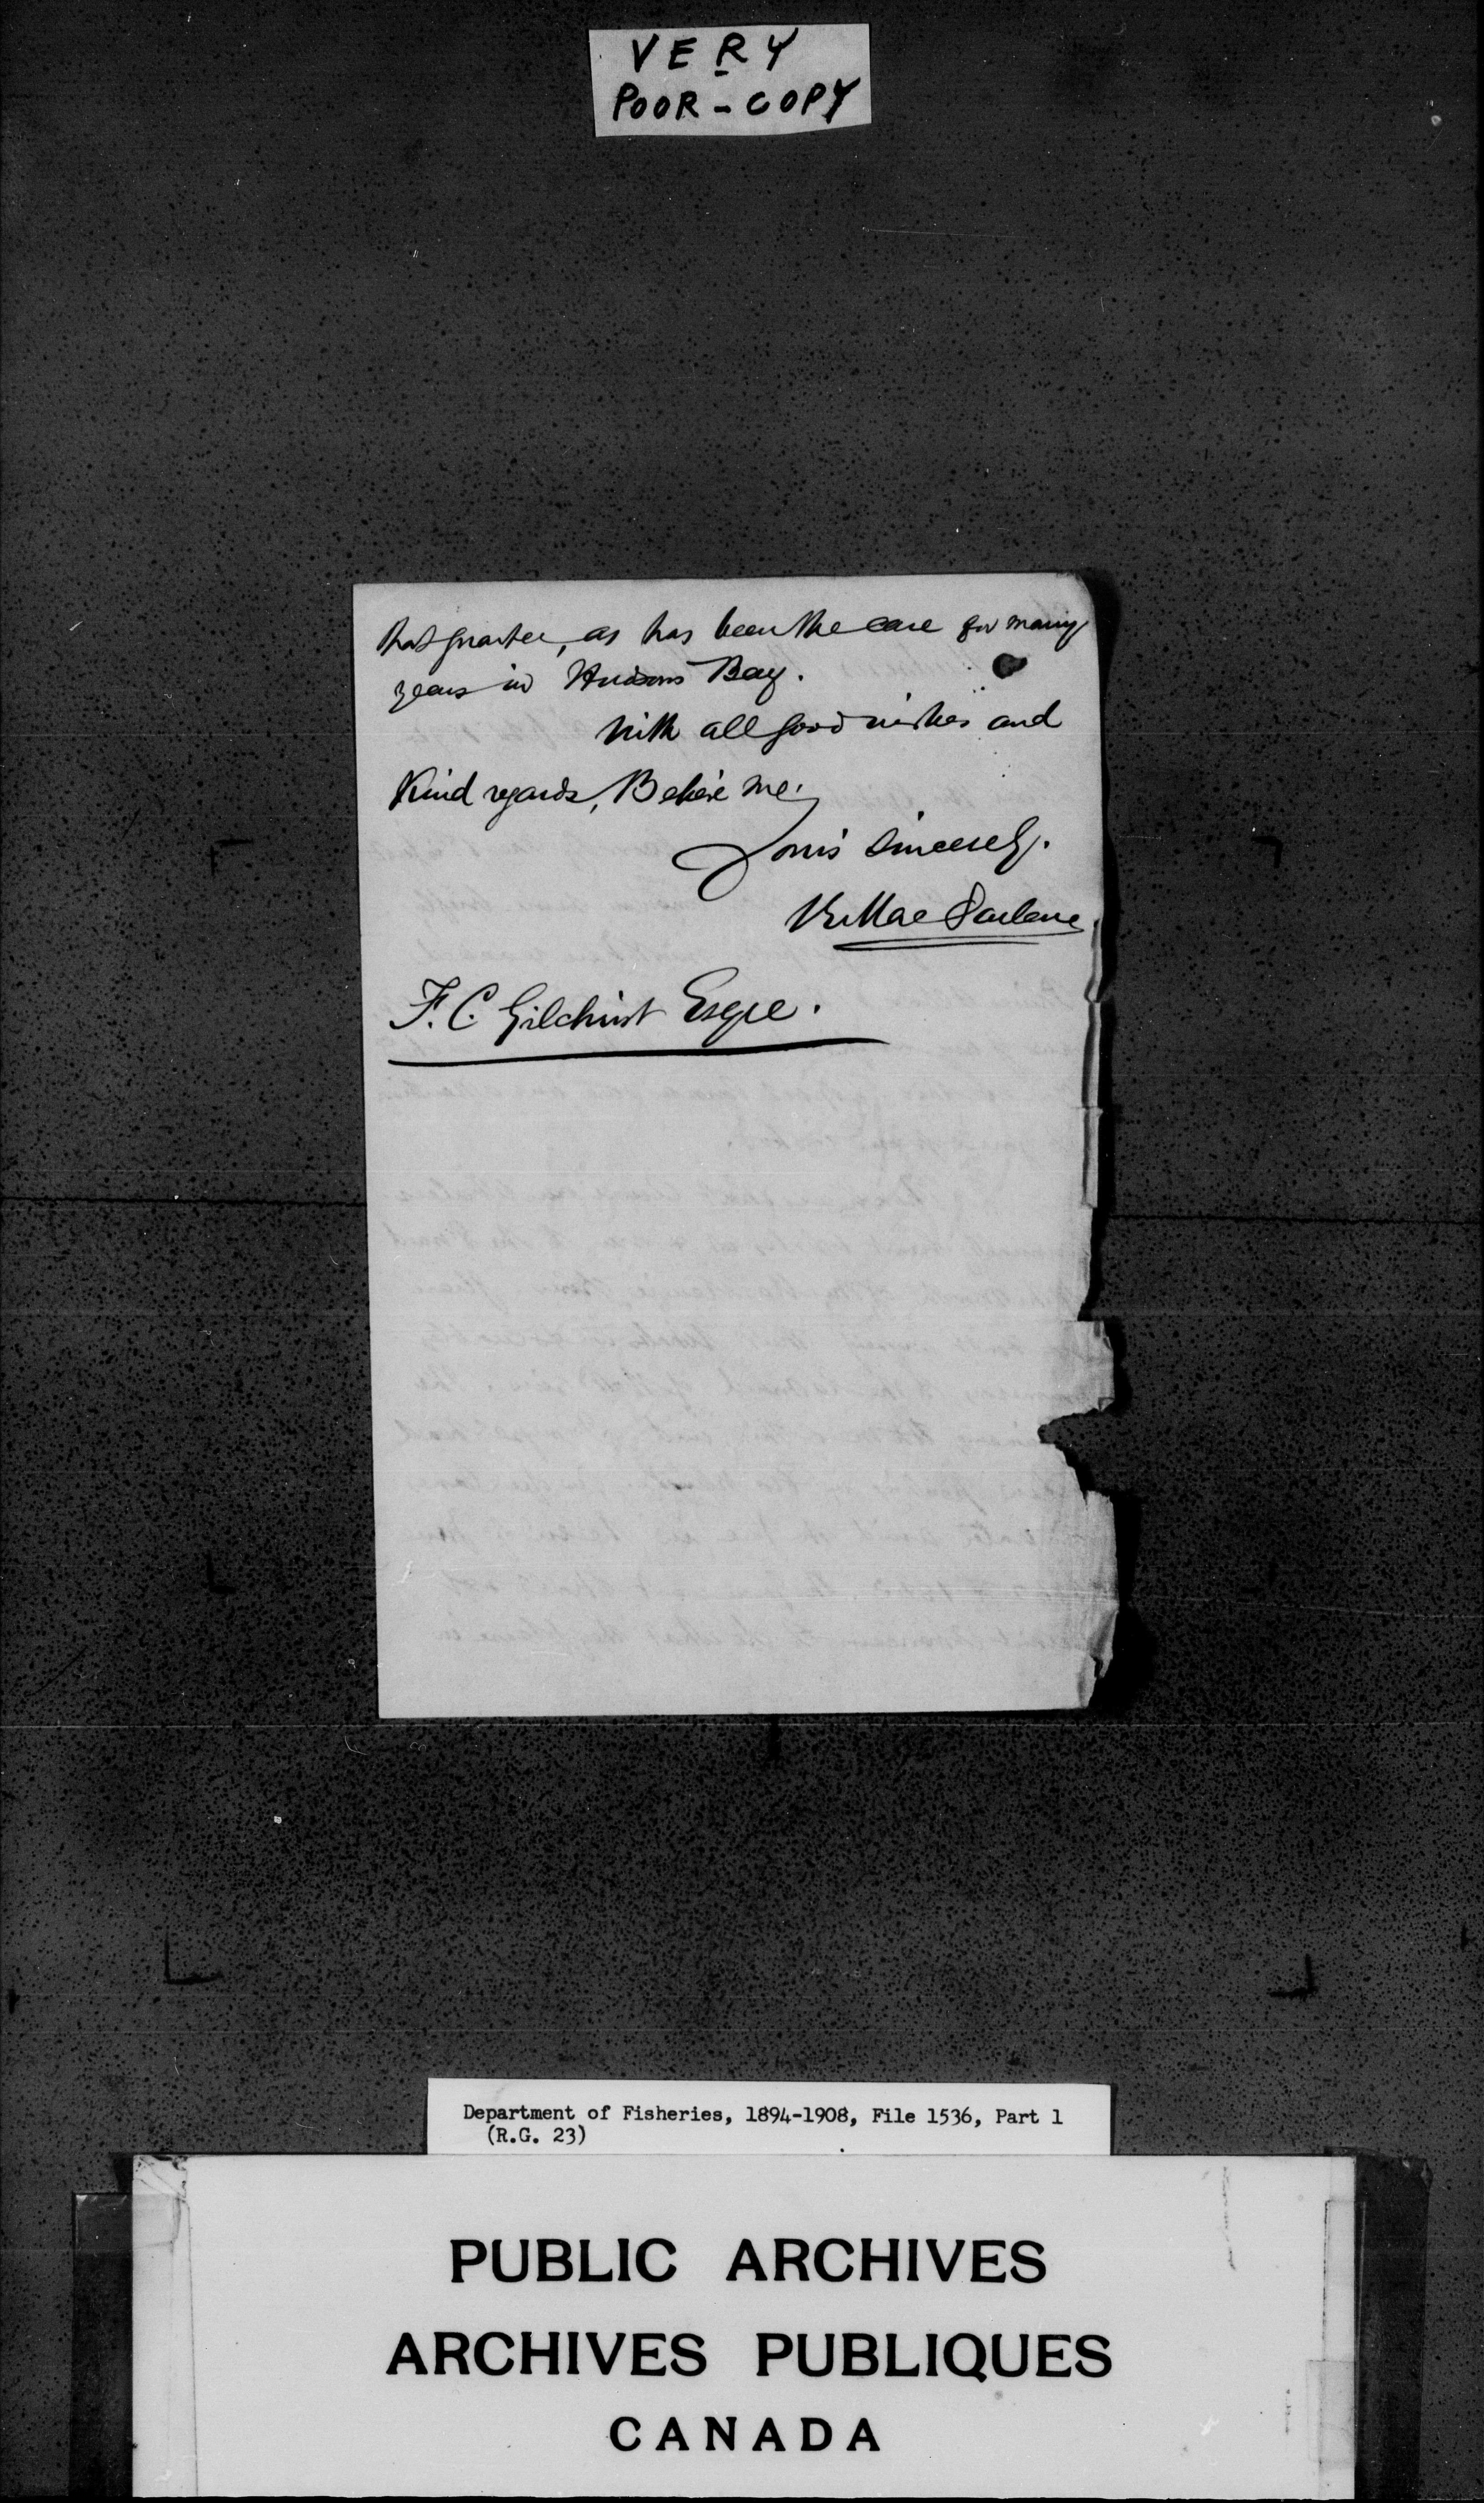 VERY
POOR-COPY
that quarter, as has been the case for many
years in Hudsons Bay.
With all good wishes and
Kind regards, Believe me,
Yours sincerely.
MacFarlane
F. C. Gilchrist Esqre.
Department of Fisheries, 1894-1908, File 1536, Part 1
(R.G. 23)
PUBLIC ARCHIVES
ARCHIVES PUBLIQUES
CANADA